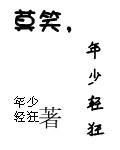 莫笑，
年少轻狂
年少
轻狂著